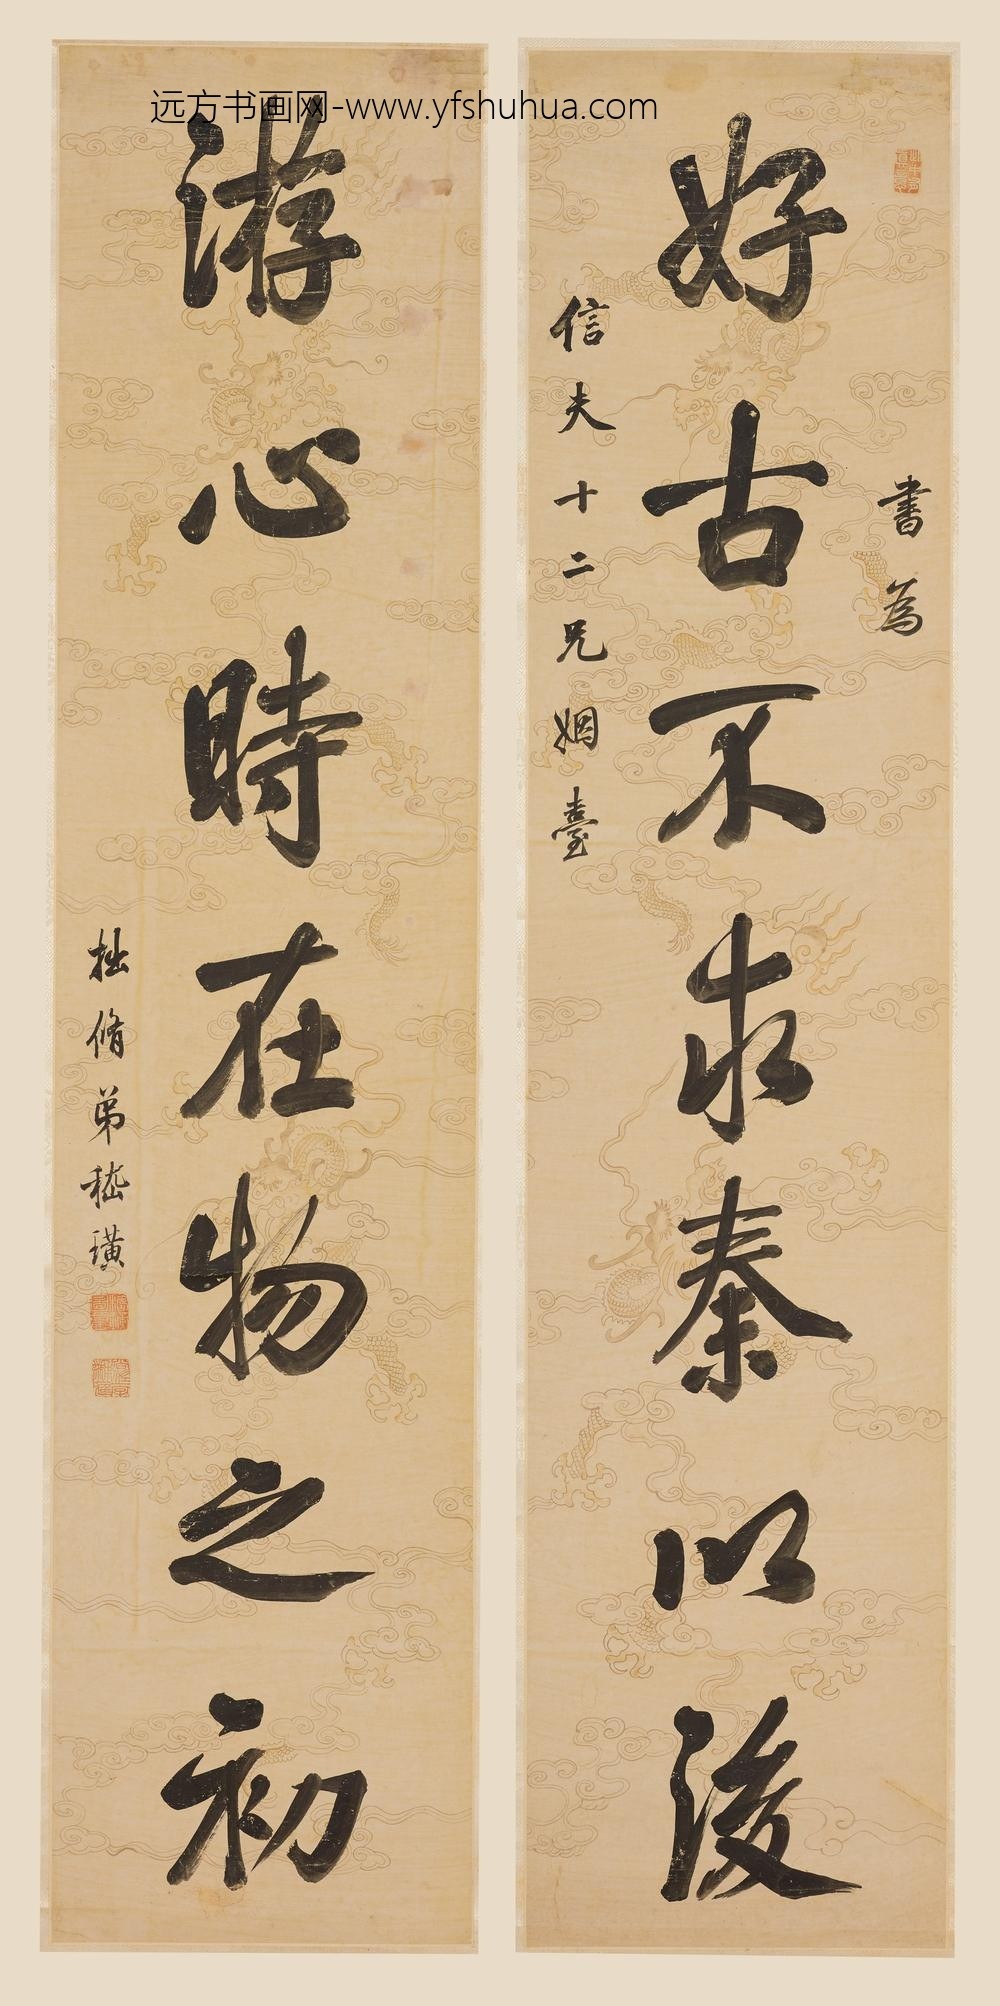 远方书画网-www.yfshuhua.com
書為
好古不求秦以後
信夫十二兄姻臺
游心時在物之初
拙脩弟嵇璜